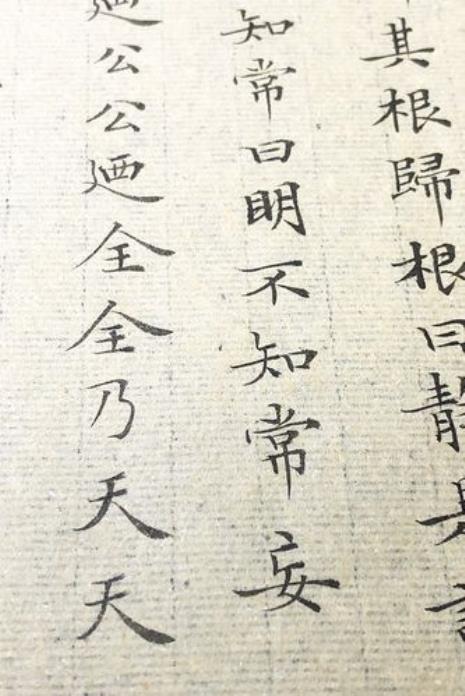 其根歸根曰靜
知常曰明不知常妄
廼公公廼全全乃天天